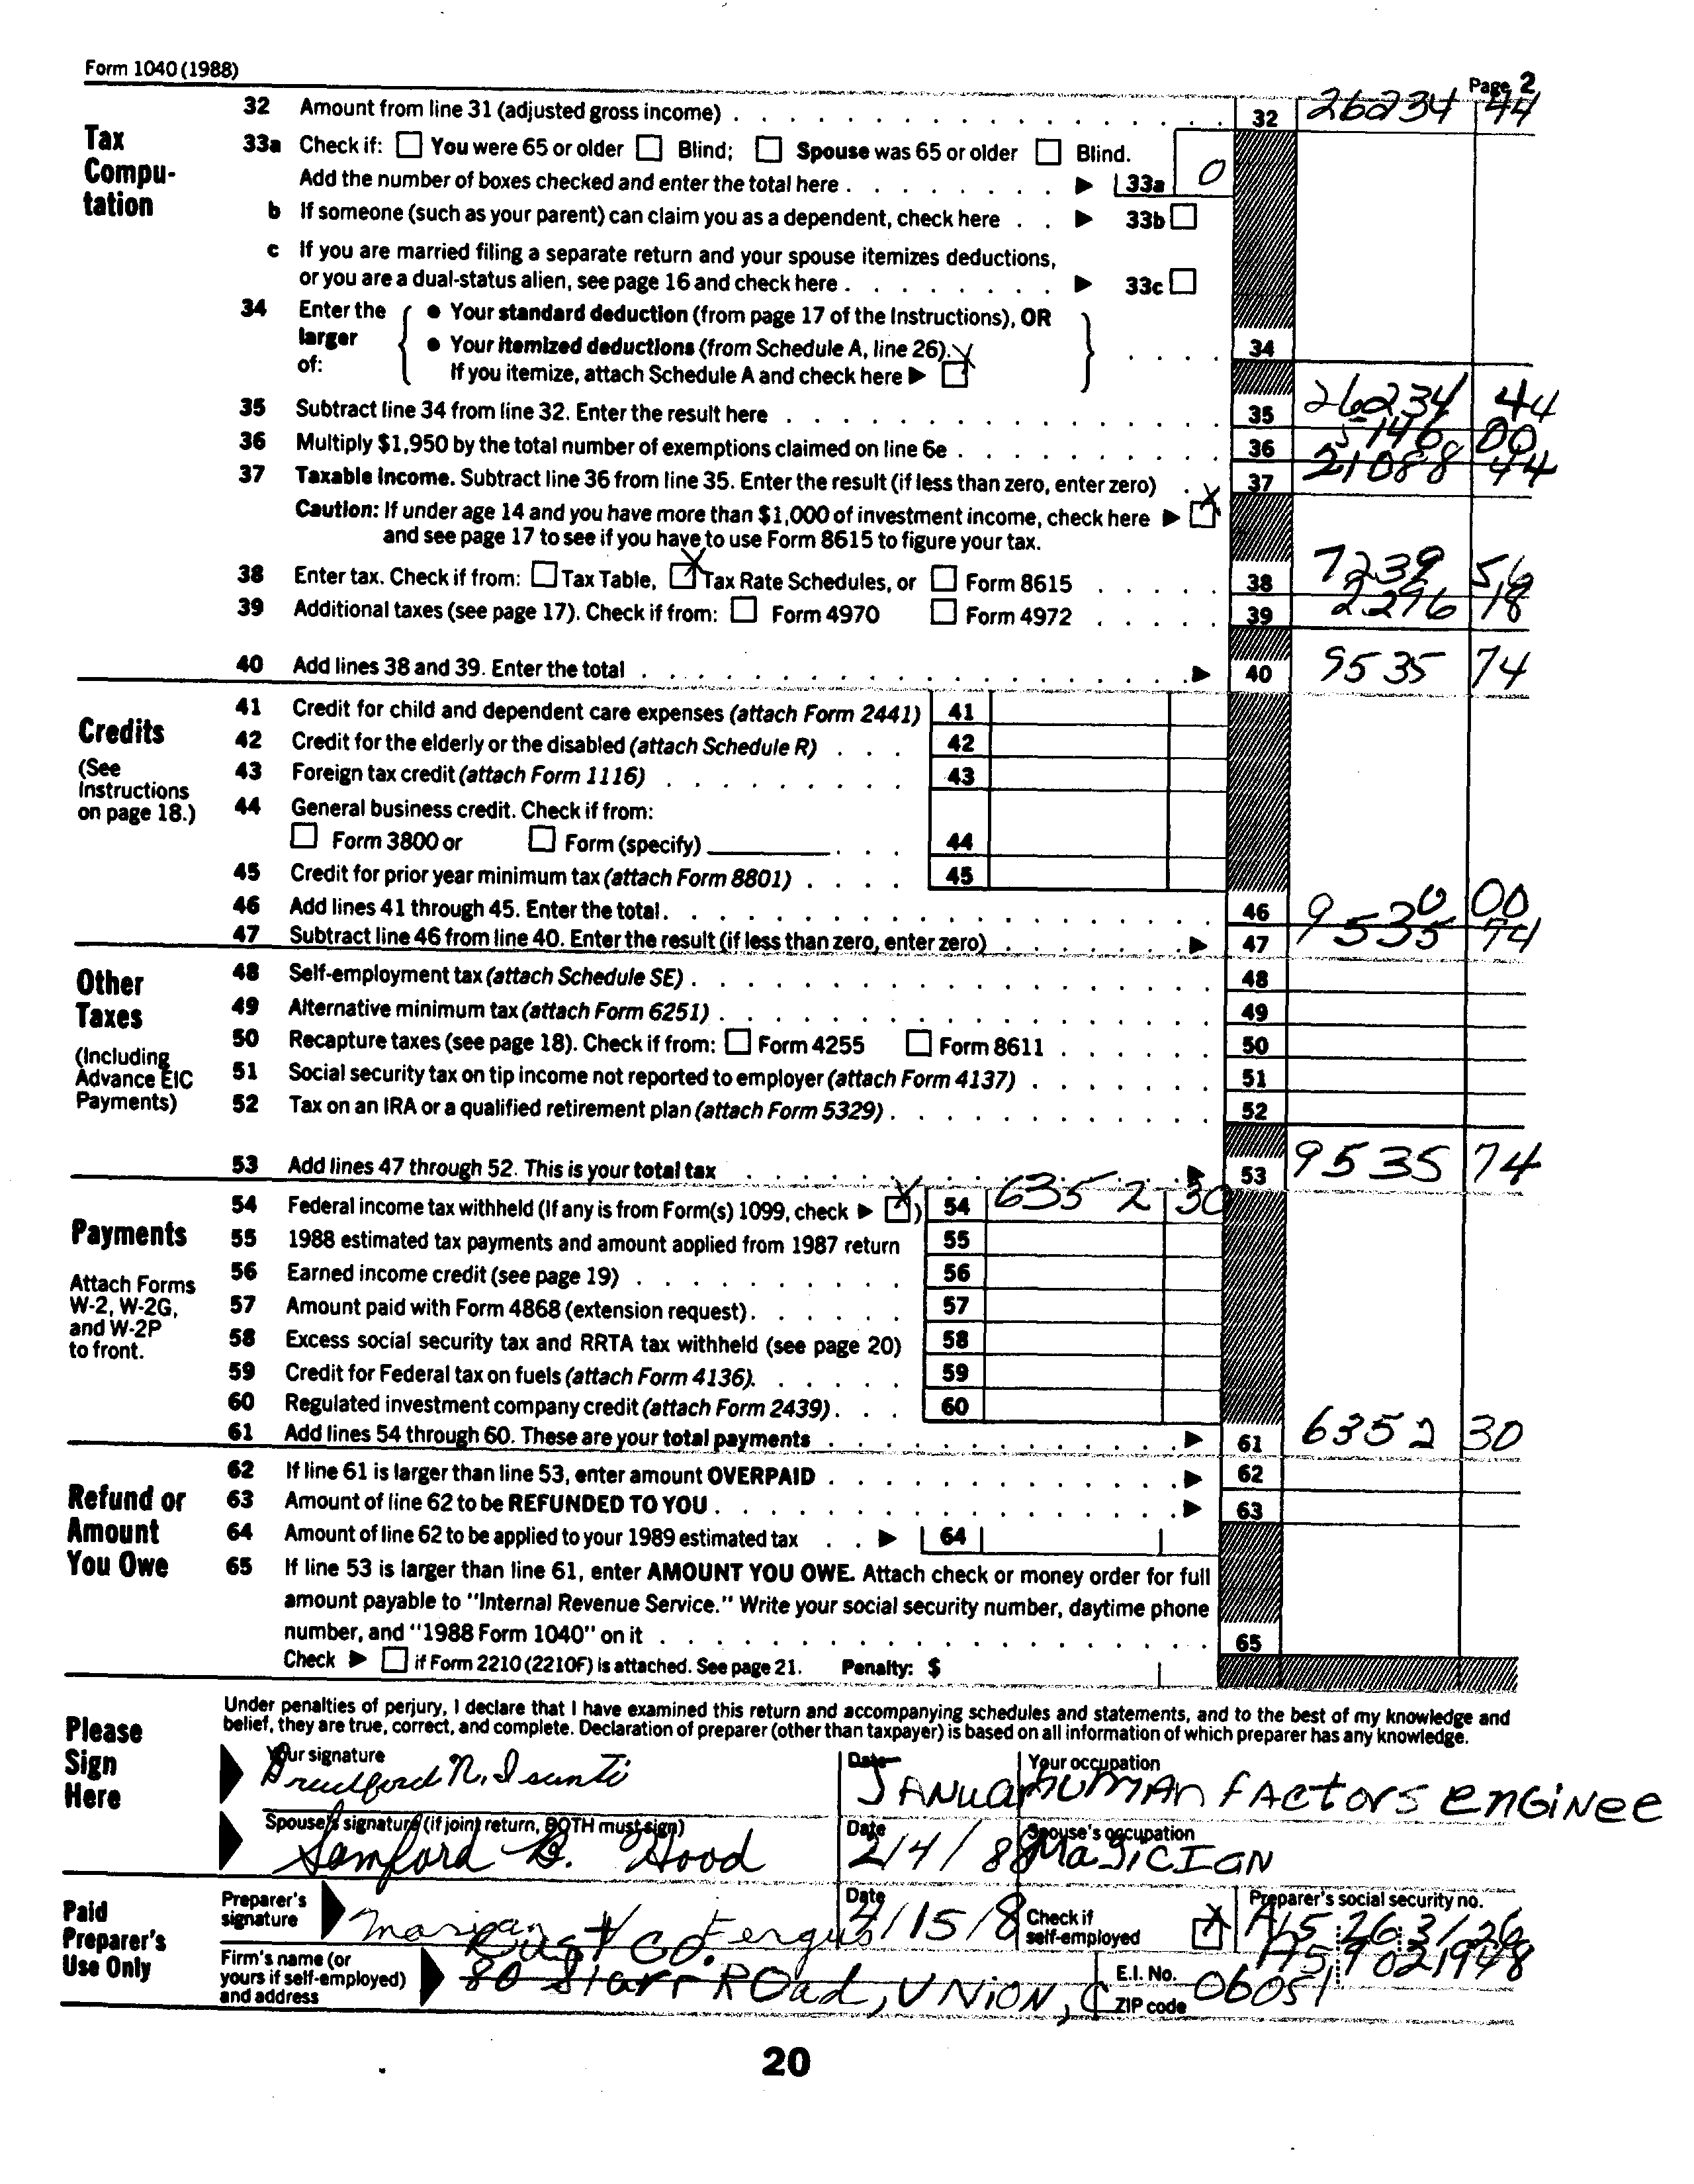 Form 1040 (1988)
Page 2
Tax Computation
32 Amount from line 31 (adjusted gross income) 32 26234 44
33a Check if: You were 65 or older Blind; Spouse was 65 or older Blind.
Add the number of boxes checked and enter the total here 33a 0
b If someone (such as your parent) can claim you as a dependent, check here 33b
c If you are married filing a separate return and your spouse itemizes deductions,
or you are a dual-status alien, see page 16 and check here 33c
34 Enter the larger of: • Your standard deduction (from page 17 of the Instructions), OR
• Your itemized deductions (from Schedule A, line 26).
If you itemize, attach Schedule A and check here ▶ X 34
35 Subtract line 34 from line 32. Enter the result here 35 26234 44
36 Multiply $1,950 by the total number of exemptions claimed on line 6e 36 5146 00
37 Taxable income. Subtract line 36 from line 35. Enter the result (if less than zero, enter zero) 37 21088 44
Caution: If under age 14 and you have more than $1,000 of investment income, check here ▶ X
and see page 17 to see if you have to use Form 8615 to figure your tax.
38 Enter tax. Check if from: Tax Table, X Tax Rate Schedules, or Form 8615 38 7239 56
39 Additional taxes (see page 17). Check if from: Form 4970 Form 4972 39 2296 18
40 Add lines 38 and 39. Enter the total ▶ 40 9535 74
Credits
(See Instructions on page 18.)
41 Credit for child and dependent care expenses (attach Form 2441) 41
42 Credit for the elderly or the disabled (attach Schedule R) 42
43 Foreign tax credit (attach Form 1116) 43
44 General business credit. Check if from:
Form 3800 or Form (specify) 44
45 Credit for prior year minimum tax (attach Form 8801) 45
46 Add lines 41 through 45. Enter the total. 46 0 00
47 Subtract line 46 from line 40. Enter the result (if less than zero, enter zero) ▶ 47 9535 74
Other Taxes
(Including Advance EIC Payments)
48 Self-employment tax (attach Schedule SE) 48
49 Alternative minimum tax (attach Form 6251) 49
50 Recapture taxes (see page 18). Check if from: Form 4255 Form 8611 50
51 Social security tax on tip income not reported to employer (attach Form 4137) 51
52 Tax on an IRA or a qualified retirement plan (attach Form 5329) 52
53 Add lines 47 through 52. This is your total tax ▶ 53 9535 74
Payments
Attach Forms W-2, W-2G, and W-2P to front.
54 Federal income tax withheld (If any is from Form(s) 1099, check ▶ X) 54 6352 30
55 1988 estimated tax payments and amount applied from 1987 return 55
56 Earned income credit (see page 19) 56
57 Amount paid with Form 4868 (extension request) 57
58 Excess social security tax and RRTA tax withheld (see page 20) 58
59 Credit for Federal tax on fuels (attach Form 4136). 59
60 Regulated investment company credit (attach Form 2439) 60
61 Add lines 54 through 60. These are your total payments ▶ 61 6352 30
Refund or Amount You Owe
62 If line 61 is larger than line 53, enter amount OVERPAID ▶ 62
63 Amount of line 62 to be REFUNDED TO YOU ▶ 63
64 Amount of line 62 to be applied to your 1989 estimated tax ▶ 64
65 If line 53 is larger than line 61, enter AMOUNT YOU OWE. Attach check or money order for full
amount payable to "Internal Revenue Service." Write your social security number, daytime phone
number, and "1988 Form 1040" on it 65
Check ▶ if Form 2210 (2210F) is attached. See page 21. Penalty: $
Please Sign Here
Under penalties of perjury, I declare that I have examined this return and accompanying schedules and statements, and to the best of my knowledge and
belief, they are true, correct, and complete. Declaration of preparer (other than taxpayer) is based on all information of which preparer has any knowledge.
Your signature Date Your occupation
N. Isanti Human Factors Enginee
Spouse's signature (if joint return, BOTH must sign) Date Spouse's occupation
Samford B. Hood 2/4/88 Magician
Paid Preparer's Use Only
Preparer's signature Date Check if self-employed X Preparer's social security no.
Fergus /15/8
Firm's name (or yours if self-employed) and address
Co. E.I. No.
80 Starr Road, Union, C ZIP code 06051
20